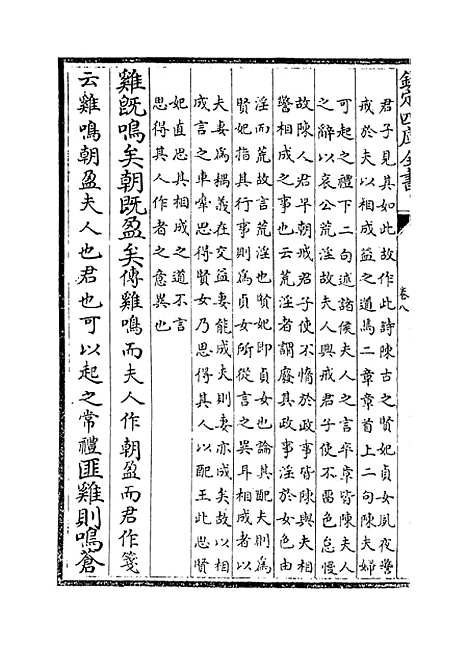 欽定四庫全書 卷八
君子見其如此故作此詩陳古之賢妃貞女夙夜警
戒於夫以相成益之道焉二章章首上二句陳夫婦
可起之禮下二句述諸侯夫人之言卒章皆陳夫人
之辭以哀公荒淫故夫人興戒君子使不留色怠慢
故陳人君早朝戒君子使不惰於政事皆陳與夫相
警相成之事也云荒淫者謂廢其政事淫於女色由
淫而荒故言荒淫也賢妃即貞女也論其配夫則為
賢妃指其行事則為貞女所從言之異耳相成者以
夫妻為耦義在交益妻能成夫則妻亦成矣故以相
成言之車舝思得賢女乃思得其人以配王此思賢
妃直思其相成之道不言
思得其人作者之意異也
雞既鳴矣朝既盈矣傳雞鳴而夫人作朝盈而君作箋
云雞鳴朝盈夫人也君也可以起之常禮匪雞則鳴蒼